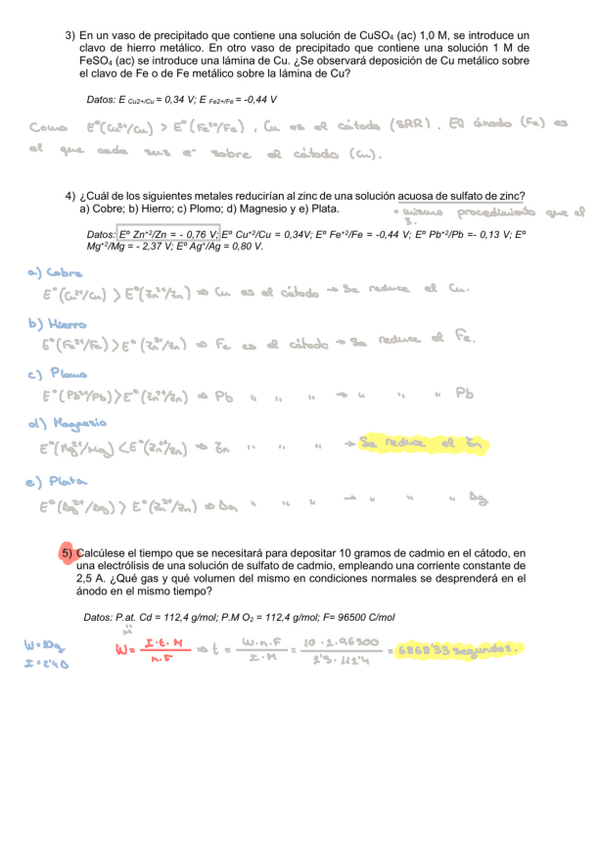 3) En un vaso de precipitado que contiene una solución de CuSO₄ (ac) 1,0 M, se introduce un
clavo de hierro metálico. En otro vaso de precipitado que contiene una solución 1 M de
FeSO₄ (ac) se introduce una lámina de Cu. ¿Se observará deposición de Cu metálico sobre
el clavo de Fe o de Fe metálico sobre la lámina de Cu?
Datos: E Cu2+/Cu = 0,34 V; E Fe2+/Fe = -0,44 V
Como Eº(Cu²⁺/Cu) > Eº(Fe²⁺/Fe), Cu es el cátodo (SRR). El ánodo (Fe) es
el que cede sus e⁻ sobre el cátodo (Cu).
4) ¿Cuál de los siguientes metales reducirían al zinc de una solución acuosa de sulfato de zinc?
a) Cobre; b) Hierro; c) Plomo; d) Magnesio y e) Plata.
* mismo procedimiento que el
3.
Datos: Eº Zn⁺²/Zn = - 0,76 V; Eº Cu⁺²/Cu = 0,34V; Eº Fe⁺²/Fe = -0,44 V; Eº Pb⁺²/Pb =- 0,13 V; Eº
Mg⁺²/Mg = - 2,37 V; Eº Ag⁺/Ag = 0,80 V.
a) Cobre
Eº(Cu²⁺/Cu) > Eº(Zn²⁺/Zn) ⇒ Cu es el cátodo → Se reduce el Cu.
b) Hierro
Eº(Fe²⁺/Fe) > Eº(Zn²⁺/Zn) ⇒ Fe es el cátodo → Se reduce el Fe.
c) Plomo
Eº(Pb²⁺/Pb) > Eº(Zn²⁺/Zn) ⇒ Pb " " " → " " " " Pb
d) Magnesio
Eº(Mg²⁺/Mg) < Eº(Zn²⁺/Zn) ⇒ Zn " " " → Se reduce el Zn
e) Plata
Eº(Ag²⁺/Ag) > Eº(Zn²⁺/Zn) ⇒ " " " → " " " " Ag
5) Calcúlese el tiempo que se necesitará para depositar 10 gramos de cadmio en el cátodo, en
una electrólisis de una solución de sulfato de cadmio, empleando una corriente constante de
2,5 A. ¿Qué gas y qué volumen del mismo en condiciones normales se desprenderá en el
ánodo en el mismo tiempo?
Datos: P.at. Cd = 112,4 g/mol; P.M O₂ = 112,4 g/mol; F= 96500 C/mol
" M
W = 10g
W = I·t·M / n·F ⇒ t = W·n·F / I·M = 10·2·96500 / 2'5·112'4 = 6868'33 segundos.